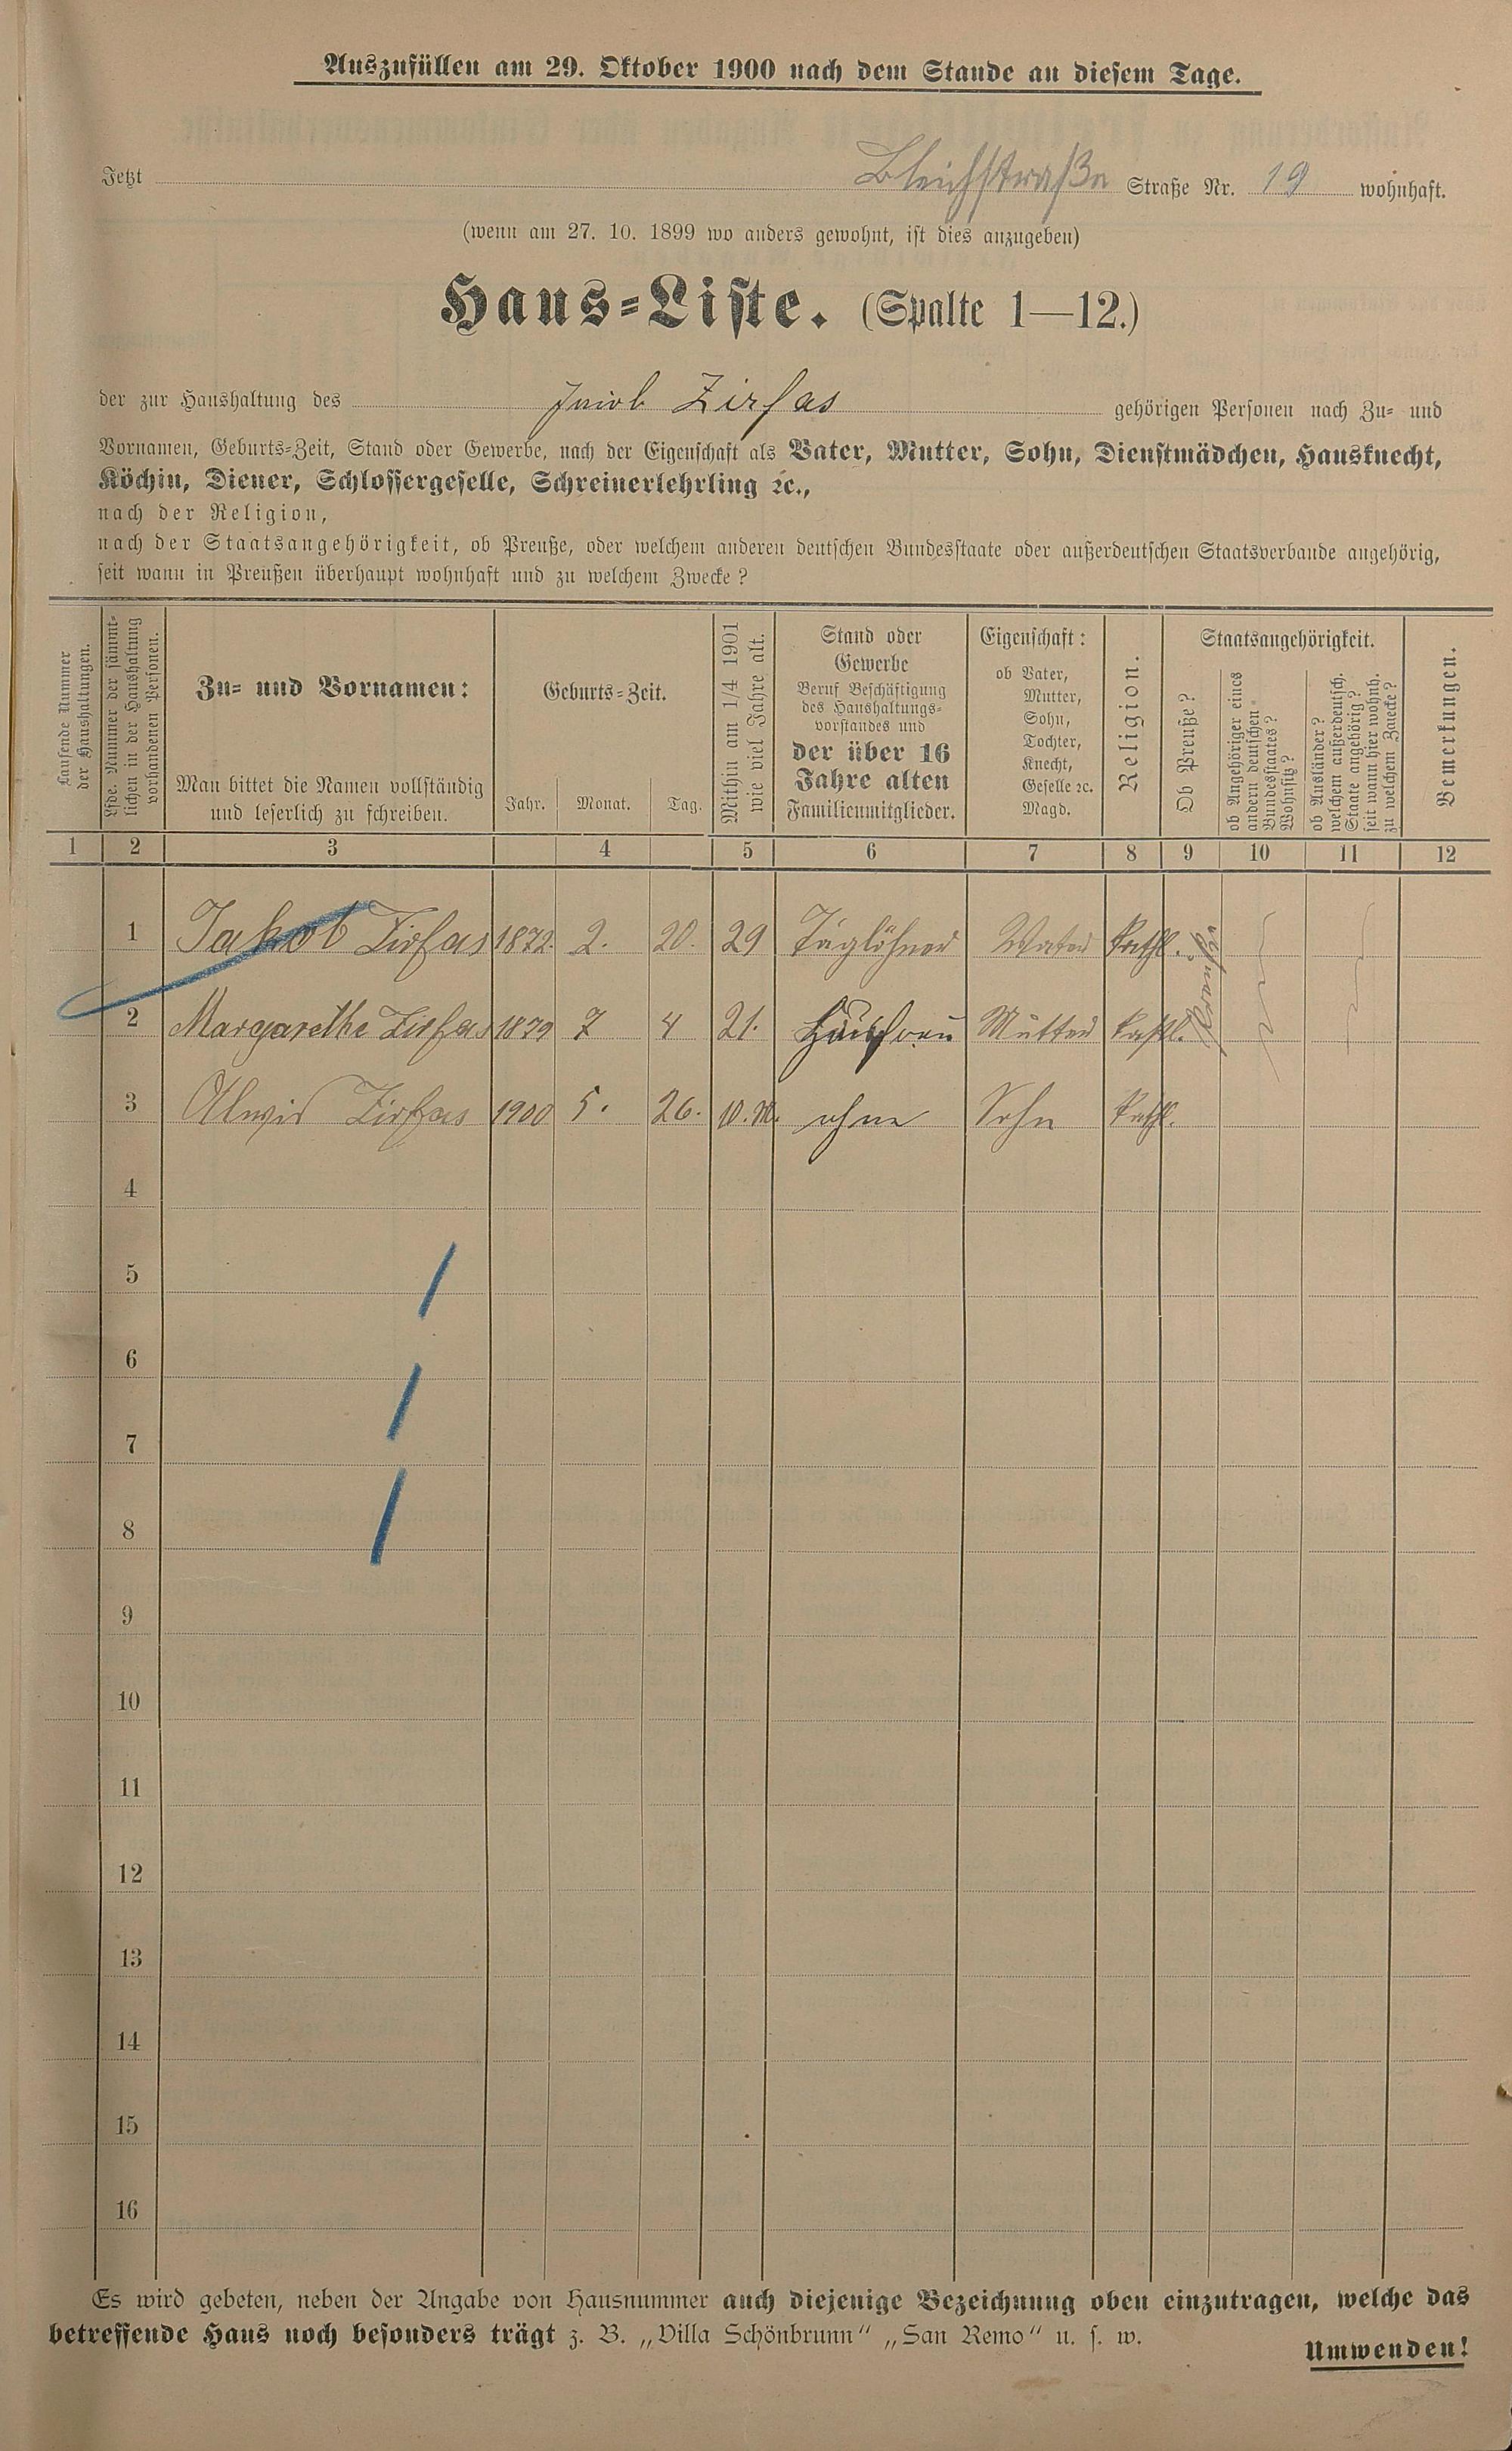 Auszufüllen am 29. Oktober 1900 nach dem Stande an diesem Tage.
Jetzt Bleichstraße Straße Nr. 19 wohnhaft.
(wenn am 27. 10. 1899 wo anders gewohnt, ist dies anzugeben)
Haus-Liste. (Spalte 1—12.)
der zur Haushaltung des Jacob Zirfas gehörigen Personen nach Zu- und
Vornamen, Geburts-Zeit, Stand oder Gewerbe, nach der Eigenschaft als Vater, Mutter, Sohn, Dienstmädchen, Hausknecht,
Köchin, Diener, Schlossergeselle, Schreinerlehrling ꝛc.,
nach der Religion,
nach der Staatsangehörigkeit, ob Preuße, oder welchem anderen deutschen Bundesstaate oder außerdeutschen Staatsverbande angehörig,
seit wann in Preußen überhaupt wohnhaft und zu welchem Zwecke?
Laufende Nummer
der Haushaltungen.
Lfde. Nummer der sämmt-
lichen in der Haushaltung
vorhandenen Personen.
Zu- und Vornamen:
Man bittet die Namen vollständig
und leserlich zu schreiben.
Geburts-Zeit.
Jahr. Monat. Tag.
Mithin am 1/4 1901
wie viel Jahre alt.
Stand oder
Gewerbe
Beruf Beschäftigung
des Haushaltungs-
vorstandes und
der über 16
Jahre alten
Familienmitglieder.
Eigenschaft:
ob Vater,
Mutter,
Sohn,
Tochter,
Knecht,
Geselle ꝛc.
Magd.
Religion.
Staatsangehörigkeit.
Ob Preuße?
ob Angehöriger eines
andern deutschen
Bundesstaates?
Wohnsitz?
ob Ausländer?
welchem außerdeutsch.
Staate angehörig?
seit wann hier wohnh.
zu welchem Zwecke?
Bemerkungen.
1 2 3 4 5 6 7 8 9 10 11 12
1 Jakob Zirfas 1872. 2. 20. 29 Taglöhner Vater kathl.
2 Margarethe Zirfas 1879 7 4 21. Hausfrau Mutter kathl.
3 Zirfas 1900 5. 26. 10. M. ohne Sohn kathl.
4
5
6
7
8
9
10
11
12
13
14
15
16
Es wird gebeten, neben der Angabe von Hausnummer auch diejenige Bezeichnung oben einzutragen, welche das
betreffende Haus noch besonders trägt z. B. „Villa Schönbrunn“ „San Remo“ u. s. w.
Umwenden!